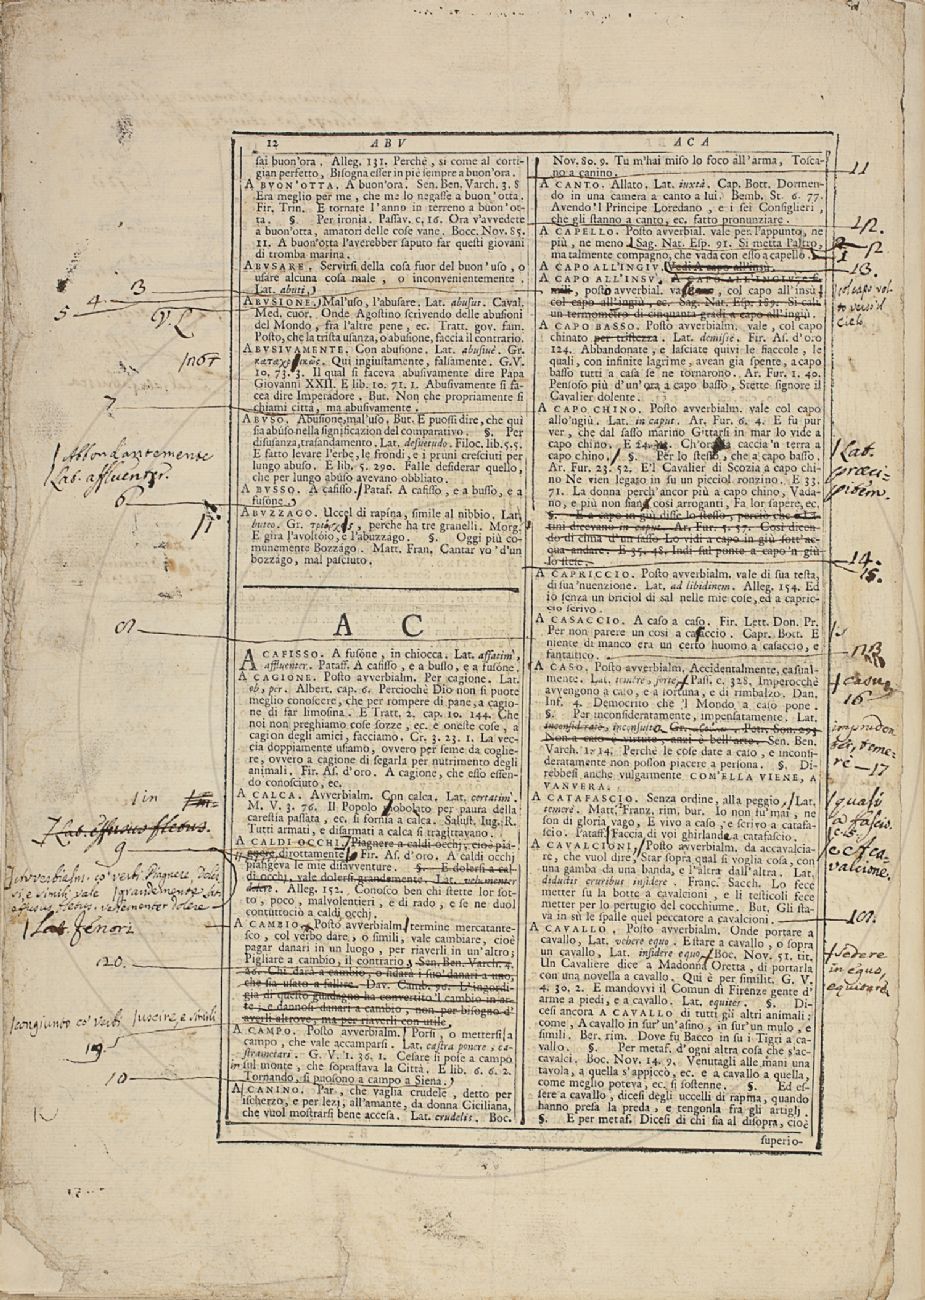 12 ABV ACA
sai buon'ora. Alleg. 131. Perchè, si come al corti-
gian perfetto, Bisogna esser in piè sempre a buon'ora.
A BUON'OTTA. A buon'ora. Sen. Ben. Varch. 3. 8
Era meglio per me, che me lo negasse a buon'otta.
Fir. Trin. E tornate l'anno in terreno a buon'ot-
ta. §. Per ironia. Passav. c, 16. Ora v'avvedete
a buon'otta, amatori delle cose vane. Bocc. Nov. 85.
11. A buon'otta l'averebber saputo far questi giovani
di tromba marina.
ABUSARE, Servirsi della cosa fuor del buon'uso, o
usare alcuna cosa male, o inconvenientemente.
Lat. abuti,
ABUSIONE, Mal'uso, l'abusare. Lat. abusus. Caval.
Med. cuor. Onde Agostino scrivendo delle abusioni
del Mondo, fra l'altre pene, ec. Tratt. gov. fam.
Posto, che la trista usanza, o abusione, faccia il contrario.
ABUSIVAMENTE. Con abusione. Lat. abusivè. Gr.
Qui ingiustamente, falsamente. G.V.
10, 73. 3. Il qual si faceva abusivamente dire Papa
Giovanni XXII. E lib. 10. 71. 1. Abusivamente si fa-
cea dire Imperadore. But. Non che propriamente si
chiami città, ma abusivamente.
ABUSO. Abusione, mal'uso, But. E puossi dire, che qui
sia abuso nella significazion del comparativo. §. Per
disusanza, trasandamento. Lat. desuetudo. Filoc. lib. 5. 5.
E fatto levare l'erbe, le frondi, e i pruni cresciuti per
lungo abuso. E lib. 5. 290. Falle desiderar quello,
che per lungo abuso avevano obbliato.
A BUSSO. A cafisso. Pataf. A cafisso, e a busso, e a
fusone.
ABUZZAGO. Uccel di rapina, simile al nibbio. Lat.
buteo. Gr. perche ha tre granelli. Morg.
E gira l'avoltoio, e l'abuzzago. §. Oggi più co-
munemente Bozzago. Matt. Fran, Cantar vo' d'un
bozzago, mal pasciuto.
A C
A CAFISSO. A fusone, in chiocca. Lat. affatim,
affluenter. Pataff. A cafisso, e a busso, e a fusone.
A CAGIONE. Posto avverbialm. Per cagione. Lat.
ob, per. Albert. cap. 6. Perciochè Dio non si puote
meglio conoscere, che per rompere di pane, a cagio-
ne di far limosina. E Tratt. 2. cap. 10. 144. Che
noi non preghiamo cose sozze, ec. e oneste cose, a
cagion degli amici, facciamo. Cr. 3. 23. 1. La vec-
cia doppiamente usamo, ovvero per seme da coglie-
re, ovvero a cagione di segarla per nutrimento degli
animali. Fir. As. d'oro. A cagione, che esso essen-
do conosciuto, ec.
A CALCA. Avverbialm. Con calca. Lat. certatim.
M. V. 3. 76. Il Popolo per paura della
carestia passata, ec. si fornia a calca. Salust. Iug. R.
Tutti armati, e disarmati a calca si tragittavano.
A CALDI OCCHI, Piagnere a caldi occhj, cioè pia-
gnere dirottamente. Fir. As. d'oro. A caldi occhj
piangeva le mie disavventure. §. E dolersi a cal-
di occhj, vale dolersi grandemente, Lat. vehementer
dolere. Alleg. 152. Conosco ben chi stette lor sot-
to, poco, malvolentieri, e di rado, e se ne duol
contuttociò a caldi occhj.
A CAMBIO. Posto avverbialm. termine mercatante-
sco, col verbo dare, o simili, vale cambiare, cioè
pagar danari in un luogo, per riaverli in un'altro;
Pigliare a cambio, il contrario, Sen. Ben. Varch. 4.
Chi darà a cambio, o fidarà i suo' danari a uno,
che sia usato a fallire. Dav. Camb. 96. L'ingordi-
gia di questo guadagno ha convertito'l cambio in ar-
te; e dannosi danari a cambio, non per bisogno d'
averli altrove, ma per riaverli con utile,
A CAMPO. Posto avverbialm. Porsi, o mettersi a
campo, che vale accamparsi. Lat. castra ponere, ca-
strametari. G. V. 1. 36. 1. Cesare si pose a campo
in sul monte, che soprastava la Città. E lib. 6. 6. 2.
Tornando, si puosono a campo a Siena.
A CANINO. Par, che vaglia crudele, detto per
ischerzo, e per lezj, all'amante, da donna Ciciliana,
che vuol mostrarsi bene accesa. Lat. crudelis. Boc.
Nov. 80. 9. Tu m'hai miso lo foco all'arma, Tosca-
no a canino.
A CANTO. Allato. Lat. iuxtà. Cap. Bott. Dormen-
do in una camera a canto a lui. Bemb. St. 6. 77.
Avendo'l Principe Loredano, e i sei Consiglieri,
che gli stanno a canto, ec. fatto pronunziare.
A CAPELLO. Posto avverbial. vale per l'appunto, ne
più, ne meno. Sag. Nat. Esp. 91. Si metta l'altro,
ma talmente compagno, che vada con esso a capello.
A CAPO ALL'INGIU. Vedi A capo all'insù.
A CAPO ALL'INSU.
posto avverbial. col capo all'insù
col capo all'ingiù, ec. Sag. Nat. Esp. 189. Si cali
un termometro di cinquanta gradi a capo all'ingiù.
A CAPO BASSO. Posto avverbialm. vale, col capo
chinato per tristezza. Lat. demisse. Fir. As. d'oro
124. Abbandonate, e lasciate quivi le fiaccole, le
quali, con infinite lagrime, avean già spente, a capo
basso tutti a casa se ne tornarono. Ar. Fur. 1. 40.
Pensoso più d'un'ora a capo basso, Stette signore il
Cavalier dolente.
A CAPO CHINO. Posto avverbialm. vale col capo
allo'ngiù. Lat. in caput. Ar. Fur. 6. 4. E fu pur
ver, che dal sasso marino Gittarsi in mar lo vide a
capo chino. E Ch'ora caccia'n terra a
capo chino. §. Per lo stesso, che a capo basso.
Ar. Fur. 23. 52. E'l Cavalier di Scozia a capo chi-
no Ne vien legato in su un picciol ronzino. E 33.
71. La donna perch'ancor più a capo chino, Vada-
no, e più non sian così arroganti, Fa lor sapere, ec.
§. E a capo in giù disse lo stesso, perciò che i La-
tini dicevano in caput. Ar. Fur. 5. 57. Così dicen-
do di cima d'un sasso Lo vidi a capo in giù sott'ac-
qua andare. E 35. 48. Indi sul ponte a capo'n giù
lo stese.
A CAPRICCIO. Posto avverbialm. vale di sua testa,
di sua'nuenzione. Lat. ad libidinem. Alleg. 154. Ed
io senza un briciol di sal nelle mie cose, ed a capric-
cio scrivo.
A CASACCIO. A caso a caso. Fir. Lett. Don. Pr.
Per non parere un così a casaccio. Capr. Bott. E
niente di manco era un certo huomo a casaccio, e
fantastico.
A CASO. Posto avverbialm. Accidentalmente, casual-
mente. Lat. temere, forte. Pass. c. 328. Imperocchè
avvengono a caso, e a fortuna, e di rimbalzo. Dan.
Inf. 4. Democrito che'l Mondo a caso pone.
§. Per inconsideratamente, impensatamente. Lat.
Petr. Son. 293
Non a caso è virtute, anzi è bell'arte. Sen. Ben.
Varch. 1. 14. Perchè le cose date a caso, e inconsi-
deratamente non posson piacere a persona. §. Di-
rebbesi anche vulgarmente COM'ELLA VIENE, A
VANVERA.
A CATAFASCIO. Senza ordine, alla peggio, Lat.
temerè. Matt. Franz. rim. bur. Io non fu'mai, ne
son di gloria vago, E vivo a caso, e scrivo a catafa-
scio. Pataff. Faccia di voi ghirlande a catafascio.
A CAVALCIONI, Posto avverbialm. da accavalcia-
re, che vuol dire, Star sopra qual si voglia cosa, con
una gamba da una banda, e l'altra dall'altra. Lat.
diductis cruribus insidere. Franc. Sacch. Lo fece
metter su la botte a cavalcioni, e li testicoli fece
metter per lo pertugio del cocchiume. But, Gli sta-
va in sù le spalle quel peccatore a cavalcioni.
A CAVALLO. Posto avverbialm. Onde portare a
cavallo, Lat. vehere equo. E stare a cavallo, o sopra
un cavallo, Lat. insidere equo. Boc. Nov. 51. tit.
Un Cavaliere dice a Madonna Oretta, di portarla
con una novella a cavallo. Qui è per similit. G. V.
4. 30. 2. E mandovvi il Comun di Firenze gente d'
arme a piedi, e a cavallo. Lat. equiter. §. Di-
cesi ancora A CAVALLO di tutti gli altri animali;
come, A cavallo in sur'un'asino, in sur'un mulo, e
simili. Ber. rim. Dove fu Bacco in su i Tigri a ca-
vallo. §. Per metaf. d'ogni altra cosa che s'ac-
cavalci. Boc. Nov. 14. 9. Venutagli alle mani una
tavola, a quella s'appiccò, ec. e a cavallo a quella,
come meglio poteva, ec. si sostenne. §. Ed es-
sere a cavallo, dicesi degli uccelli di rapina, quando
hanno presa la preda, e tengonla fra gli artigli.
§. E per metaf. Dicesi di chi sia al disopra, cioè
superio-
3
4
5
7
Abbondantemente
Lat. affluenter.
6
8
1 in
Lat. effusus fletus.
9
Lat. fenori
20
congiunto co' verbi
19
10
11
12
13.
col capo vol-
to verso'l
cielo
Lat.
præci-
pitem.
14.
15.
casu,
16
17
quasi
a fascio
e a ca-
valcione,
sedere
in equo,
equitare